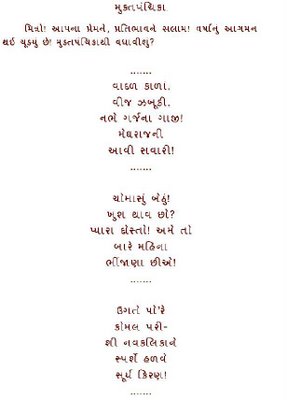 મુક્તપંચિકા
મિત્રો! આપના પ્રેમને, પ્રતિભાવને સલામ! વર્ષાનું આગમન
થઈ ચૂક્યું છે! મુક્તપંચિકાથી વધાવીશું?
.......
વાદળ કાળાં.
વીજ ઝબૂકી.
નભે ગર્જના ગાજી!
મેઘરાજની
આવી સવારી!
.......
ચોમાસું બેઠું!
ખુશ થાવ છો?
પ્યારા દોસ્તો! અમે તો
બારે મહિના
ભીંજાણા છીએ!
.......
ઉગતે પો'રે
કોમલ પરી-
શી નવકલિકાને
સ્પર્શે હળવે
સૂર્ય કિરણ!
.......